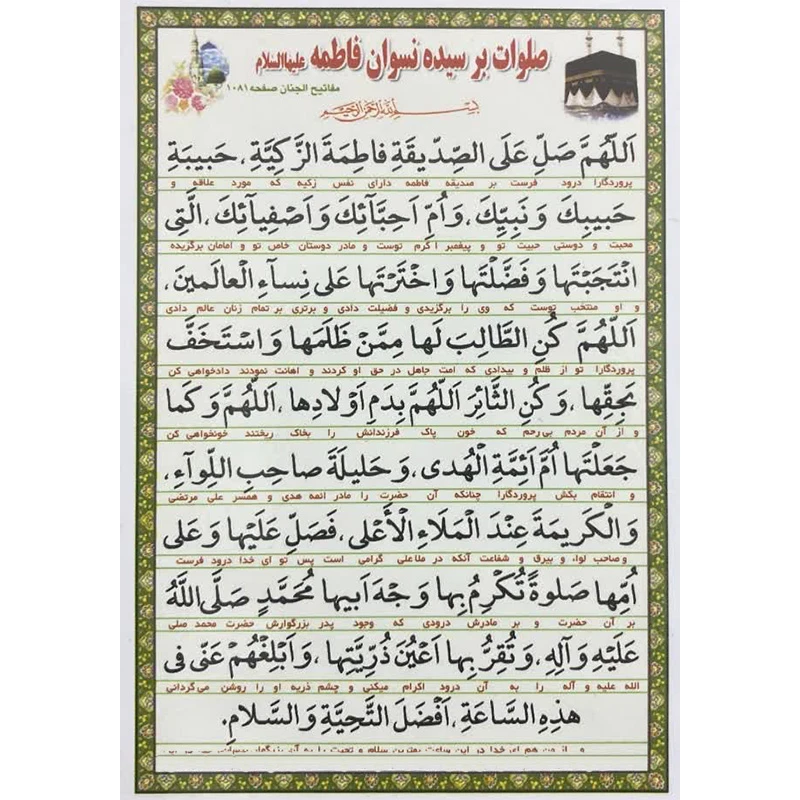 صلوات بر سیده نسوان فاطمه علیهاالسلام
مفاتیح الجنان صفحه ۱۰۸۱
بسم الله الرحمن الرحیم
اَللّٰهُمَّ صَلِّ عَلَى الصِّدّيقَةِ فاطِمَةَ الزَّكِيَّةِ، حَبيبَةِ
پروردگارا درود فرست بر صدیقه فاطمه دارای نفس زکیه که مورد علاقه و
حَبيبِكَ وَ نَبِيِّكَ، وَ اُمِّ اَحِبَّآئِكَ وَ اَصْفِيآئِكَ، الَّتِى
محبت و دوستی حبیت تو و پیغمبر اکرم توست و مادر دوستان خاص تو و امامان برگزیده
انْتَجَبْتَها وَ فَضَّلْتَها وَ اخْتَرْتَها عَلى نِسآءِ الْعالَمينَ،
و او منتخب توست که وی را برگزیدی و فضیلت دادی و برتری بر تمام زنان عالم دادی
اَللّٰهُمَّ كُنِ الطّالِبَ لَها مِمَّنْ ظَلَمَها وَ اسْتَخَفَّ
پروردگارا تو از ظلم و بیدادی که امت جاهل در حق او کردند و اهانت نمودند دادخواهی کن
بِحَقِّها، وَ كُنِ الثّائِرَ اَللّٰهُمَّ بِدَمِ اَوْلادِها، اَللّٰهُمَّ وَ كَما
و از آن مردم بی‌رحم که خون پاک فرزندانش را بخاک ریختند خونخواهی کن
جَعَلْتَها اُمَّ اَئِمَّةِ الْهُدى، وَ حَليلَةَ صاحِبِ اللِّوآءِ،
و انتقام بکش پروردگارا چنانکه آن حضرت را مادر ائمه هدی و همسر علی مرتضی
وَ الْكَريمَةَ عِنْدَ الْمَلَاءِ الْأَعْلى، فَصَلِّ عَلَيْها وَ عَلى
و صاحب لواء و بیرق و شفاعت آنکه در ملاعلی گرامی است پس تو ای خدا درود فرست
اُمِّها صَلوةً تُكْرِمُ بِها وَجْهَ اَبيها مُحَمَّدٍ صَلَّى اللّٰهُ
بر آن حضرت و بر مادرش درودی که وجود پدر بزرگوارش حضرت محمد صلی
عَلَيْهِ وَ آلِهِ، وَ تُقِرُّ بِها اَعْيُنَ ذُرِّيَّتِها، وَ اَبْلِغْهُمْ عَنّى فى
الله علیه و آله را به آن درود اکرام میکنی و چشم ذریه او را روشن می‌گردانی
هذِهِ السّاعَةِ، اَفْضَلَ التَّحِيَّةِ وَ السَّلامِ.
و از من هم ای خدا در این ساعت بهترین سلام و تحیت را به آن بزرگوار